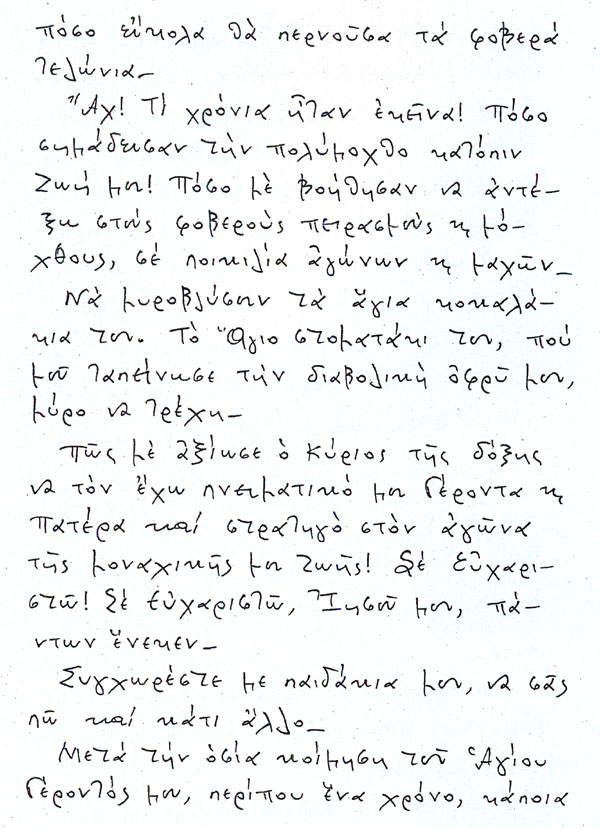 πόσο εὔκολα θὰ περνοῦσα τὰ φοβερά
τελώνια_
Ἄχ! Τί χρόνια ἦταν ἐκεῖνα! Πόσο
σημάδευσαν τὴν πολύμοχθο κατόπιν
ζωή μου! Πόσο μὲ βοήθησαν νὰ ἀντέ-
ξω στοὺς φοβεροὺς πειρασμοὺς ϗ μό-
χθους, σὲ ποικιλία ἀγώνων ϗ μαχῶν_
Νὰ μυροβλύσουν τὰ ἅγια κοκαλά-
κια του. Τὸ Ἅγιο στοματάκι του, πού
μοῦ ταπείνωσε τὴν διαβολικὴ ὀφρῦ μου,
μύρο νὰ τρέχη_
Πῶς μὲ ἀξίωσε ὁ Κύριος τῆς δόξης
νὰ τὸν ἔχω πνευματικό μου Γέροντα ϗ
Πατέρα καί στρατηγὸ στὸν ἀγῶνα
τῆς μοναχικῆς μου ζωῆς! Σὲ εὐχαρι-
στῶ! Σὲ εὐχαριστῶ, Ἰησοῦ μου, πά-
ντων ἕνεκεν_
Συγχωρέστε με παιδάκια μου, νὰ σᾶς
πῶ καί κάτι ἄλλο_
Μετά τὴν ὁσία κοίμηση τοῦ Ἁγίου
Γέροντός μου, περίπου ἕνα χρόνο, κάποια